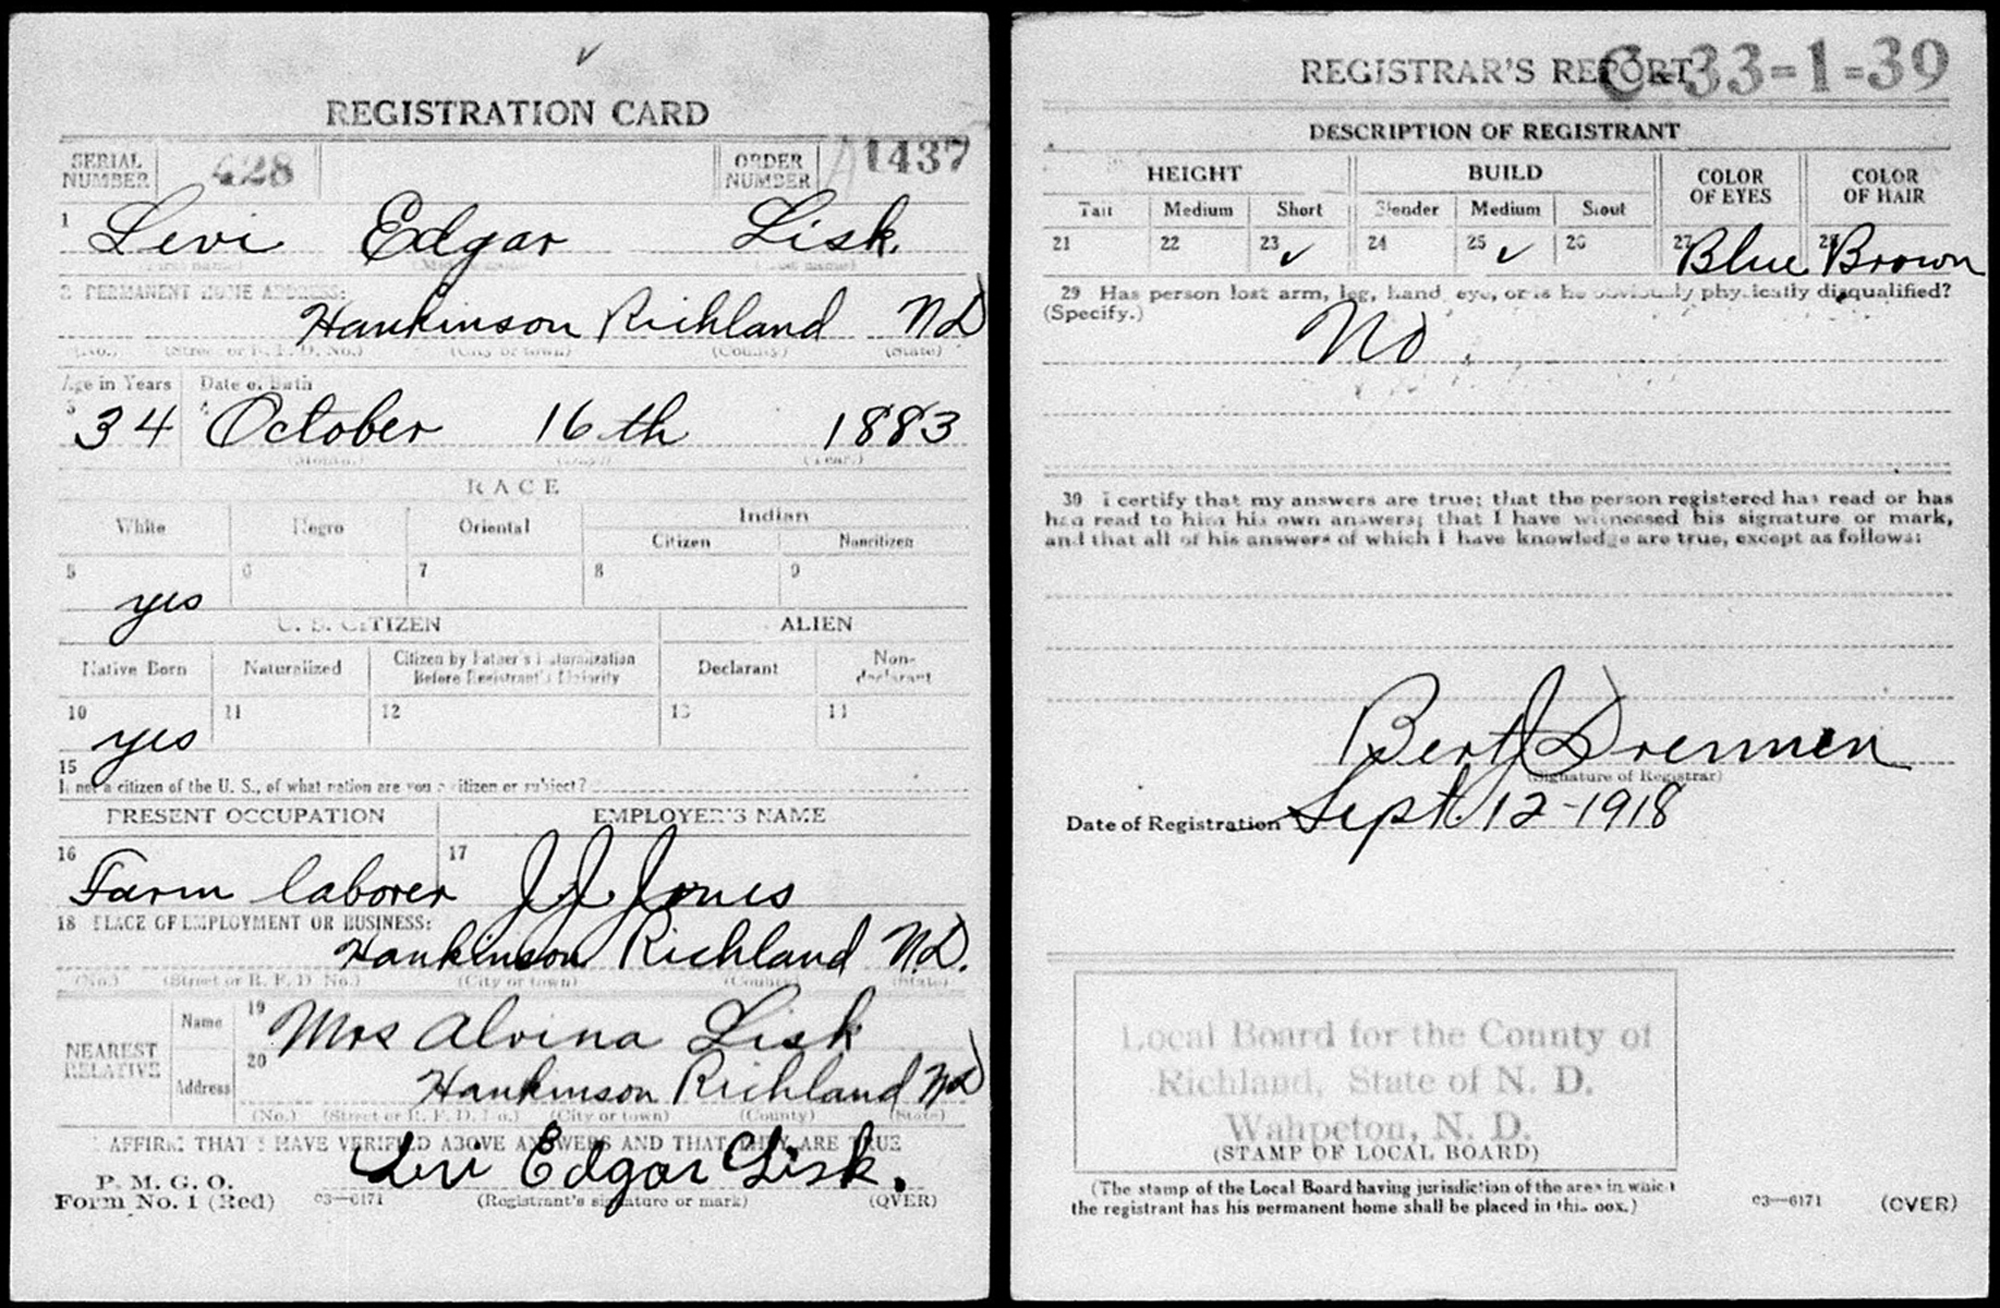 REGISTRATION CARD
SERIAL NUMBER 428 ORDER NUMBER A1437
1 Levi Edgar Lisk.
(First name) (Middle name) (Last name)
2 PERMANENT HOME ADDRESS:
Hankinson Richland ND
(No.) (Street or R. F. D. No.) (City or town) (County) (State)
Age in Years Date of Birth
3 34 4 October 16th 1883
(Month.) (Day.) (Year.)
RACE
White Negro Oriental Indian
Citizen Noncitizen
5 yes 6 7 8 9
U. S. CITIZEN ALIEN
Native Born Naturalized Citizen by Father's Naturalization Before Registrant's Majority Declarant Non-declarant
10 yes 11 12 13 14
15
If not a citizen of the U. S., of what nation are you a citizen or subject?
PRESENT OCCUPATION EMPLOYER'S NAME
16 Farm laborer 17 J J Jones
18 PLACE OF EMPLOYMENT OR BUSINESS:
Hankinson Richland N.D.
(No.) (Street or R. F. D. No.) (City or town) (County) (State)
NEAREST RELATIVE
Name 19 Mrs Alvina Lisk
Address 20 Hankinson Richland ND
(No.) (Street or R. F. D. No.) (City or town) (County) (State)
I AFFIRM THAT I HAVE VERIFIED ABOVE ANSWERS AND THAT THEY ARE TRUE
P. M. G. O.
Form No. 1 (Red) 03—6171 Levi Edgar Lisk.
(Registrant's signature or mark) (OVER)
REGISTRAR'S REPORT C-33-1-39
DESCRIPTION OF REGISTRANT
HEIGHT BUILD COLOR OF EYES COLOR OF HAIR
Tall Medium Short Slender Medium Stout
21 22 23 ✓ 24 25 ✓ 26 27 Blue 28 Brown
29 Has person lost arm, leg, hand, eye, or is he obviously physically disqualified?
(Specify.)
No
30 I certify that my answers are true; that the person registered has read or has
had read to him his own answers; that I have witnessed his signature or mark,
and that all of his answers of which I have knowledge are true, except as follows:
Bert J Drennen
(Signature of Registrar)
Date of Registration Sept. 12-1918
Local Board for the County of
Richland, State of N. D.
Wahpeton, N. D.
(STAMP OF LOCAL BOARD)
(The stamp of the Local Board having jurisdiction of the area in which
the registrant has his permanent home shall be placed in this box.)
03—6171 (OVER)